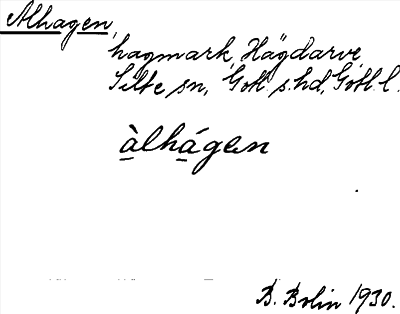 Alhagen,
hagmark, Hägdarve,
Silte sn, Gotl. s. hd, Gotl. l.
àlhágen
B. Bolin 1930.